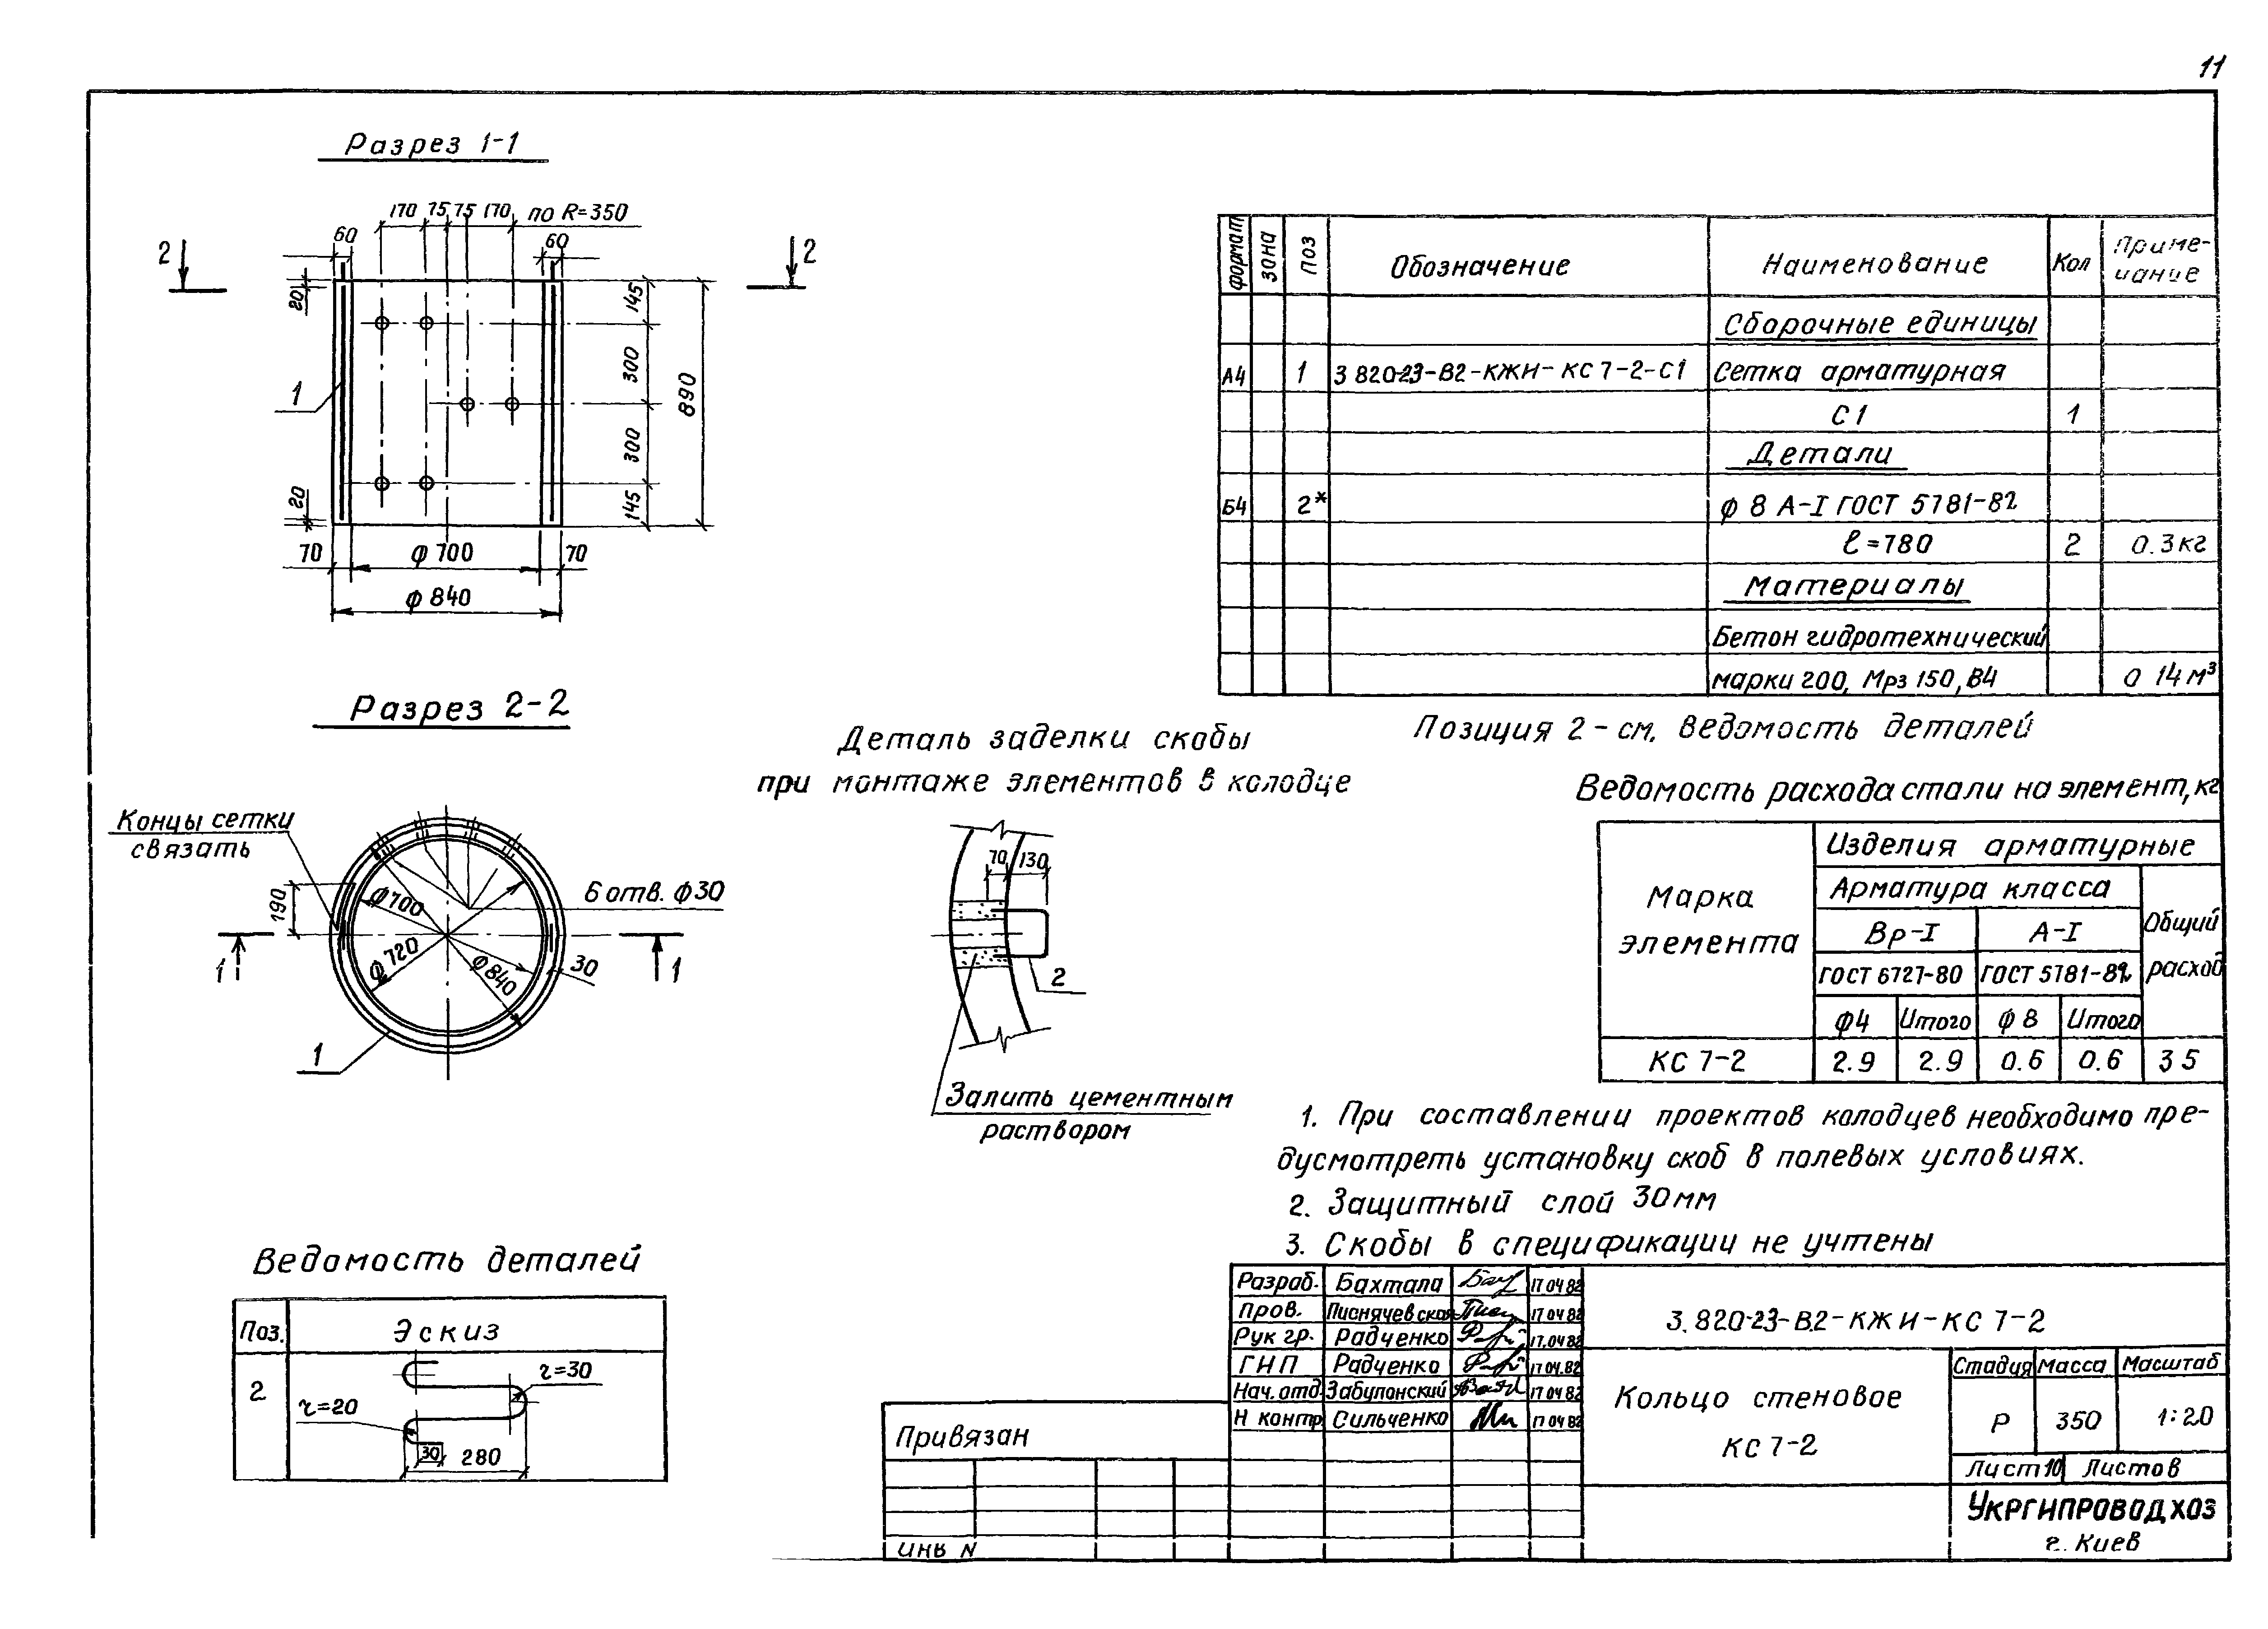 11
Разрез 1-1
170 75 75 170 по R=350
60
60
2
2
20
145
300
890
1
300
20
145
70
ф 700
70
ф 840
Разрез 2-2
Концы сетки
связать
190
ф 700
ф 720
ф 840
30
6 отв. ф 30
1
1
1
Деталь заделки скобы
при монтаже элементов в колодце
70
130
2
Залить цементным
раствором
Ведомость деталей
Поз. Эскиз
2
r=30
r=20
30
280
Формат Зона Поз Обозначение Наименование Кол Приме-
чание
Сборочные единицы
А4 1 3 820-23-В2-КЖИ-КС 7-2-С1 Сетка арматурная
С1 1
Детали
Б4 2* ф 8 А-I ГОСТ 5781-82
ℓ=780 2 0.3 кг
Материалы
Бетон гидротехнический
марки 200, Мрз 150, В4 0 14 м³
Позиция 2 - см. Ведомость деталей
Ведомость расхода стали на элемент, кг
Марка
элемента
Изделия арматурные
Арматура класса
Общий
расход
Вр-I А-I
ГОСТ 6727-80 ГОСТ 5781-82
ф4 Итого ф 8 Итого
КС 7-2 2.9 2.9 0.6 0.6 3 5
1. При составлении проектов колодцев необходимо пре-
дусмотреть установку скоб в полевых условиях.
2. Защитный слой 30 мм
3. Скобы в спецификации не учтены
Разраб. Бахтала 17 04 82
Пров. Писнячевская 17 04 82
Рук гр. Радченко 17.04 82
ГНП Радченко 17 04.82
Нач. отд. Забулонский 17 04 82
Н контр Сильченко 17 04 82
3.820-23-В.2-КЖИ-КС 7-2
Кольцо стеновое
КС 7-2
Стадия Масса Масштаб
Р 350 1:20
Лист 10 Листов
Укргипроводхоз
г. Киев
Привязан
Инв N